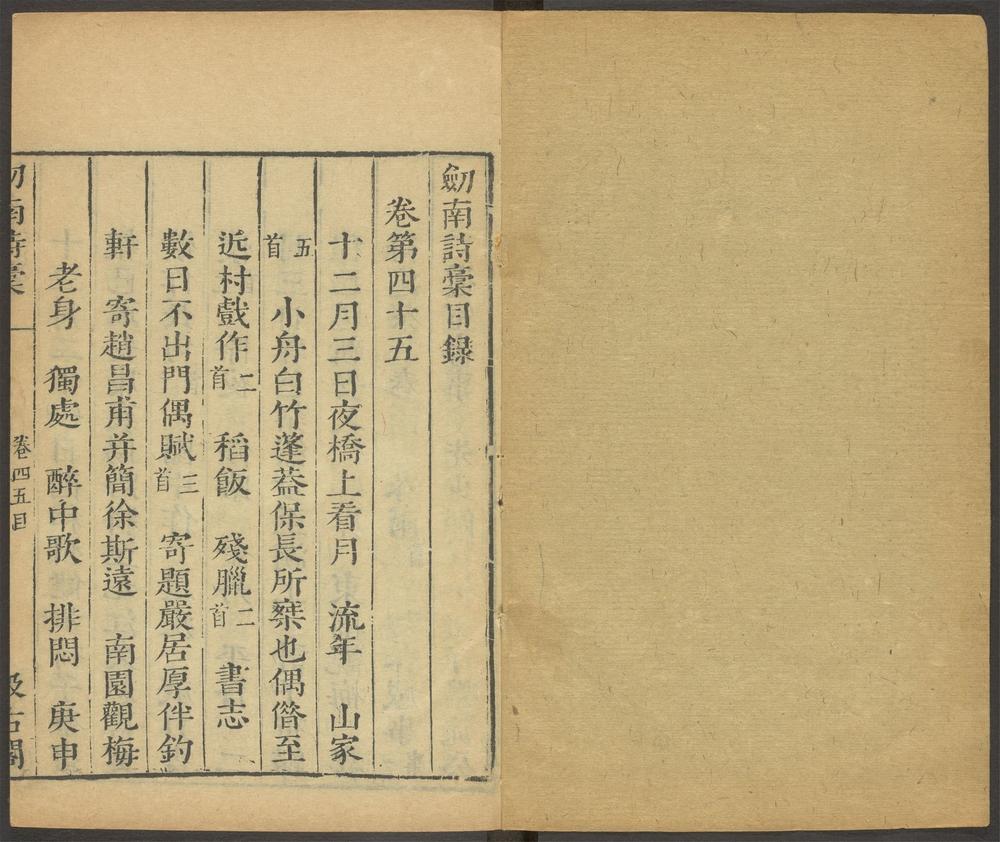 劒南詩稾目録
卷第四十五
十二月三日夜橋上看月 流年 山家
五首 小舟白竹蓬葢保長所椉也偶偺至
近村戲作二首 稻飯 殘臘二首 書志
數日不出門偶賦三首 寄題嚴居厚伴釣
軒 寄趙昌甫并簡徐斯遠 南園觀梅
老身 獨處 醉中歌 排悶 庚申
劒南詩稾 卷四五目 汲古閣